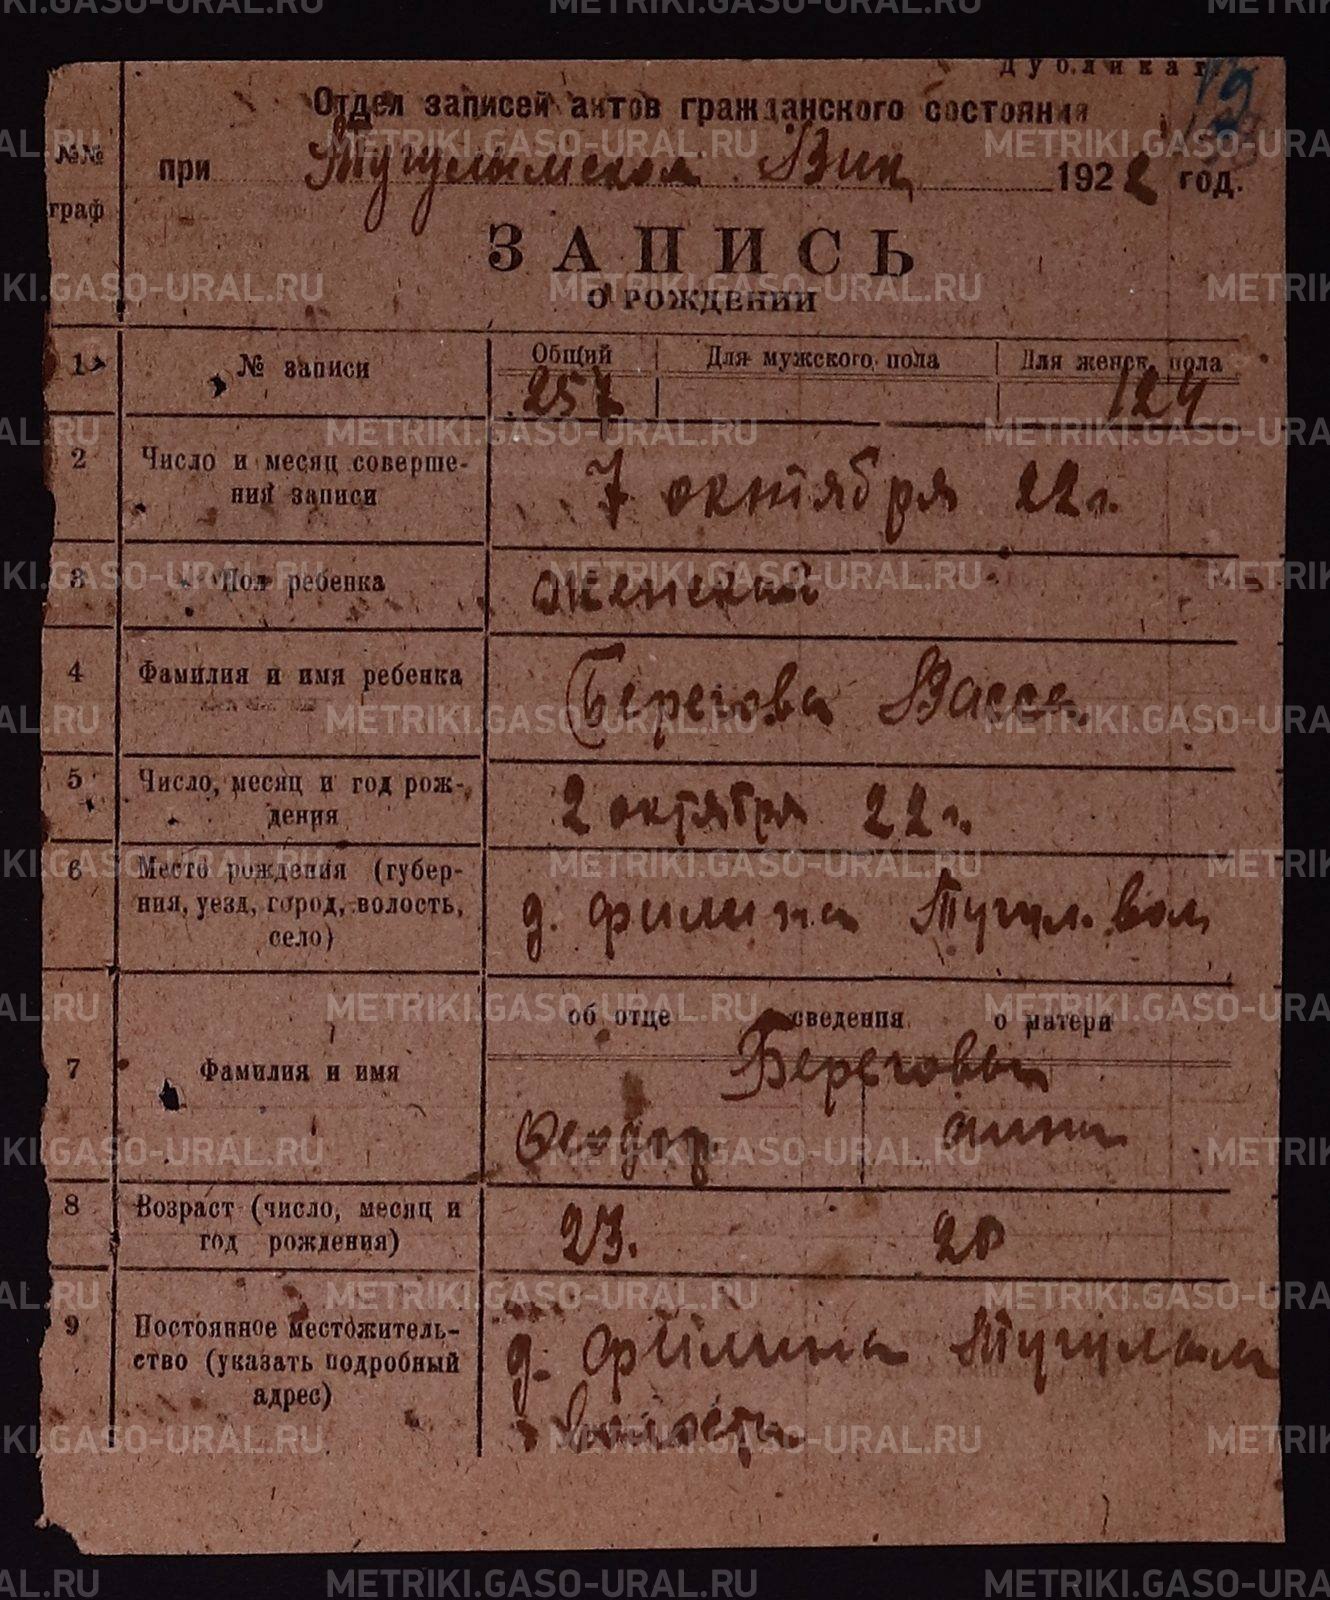 Дубликат
19
Отдел записей актов гражданского состояния
№№ граф
при Тугулымском Вик 1922 год.
ЗАПИСЬ
О РОЖДЕНИИ
1 № записи Общий Для мужского пола Для женск. пола
257 124
2 Число и месяц соверше-
ния записи
7 октября 22 г.
3 Пол ребенка женский
4 Фамилия и имя ребенка Берегова Васса
5 Число, месяц и год рож-
дения
2 октября 22 г.
6 Место рождения (губер-
ния, уезд, город, волость,
село)
д. Филина Тугул. вол
об отце сведения о матери
7 Фамилия и имя Береговы
Феодор Анна
8 Возраст (число, месяц и
год рождения)
23. 20
9 Постоянное местожитель-
ство (указать подробный
адрес)
д. Филина Тугулым
METRIKI.GASO-URAL.RU